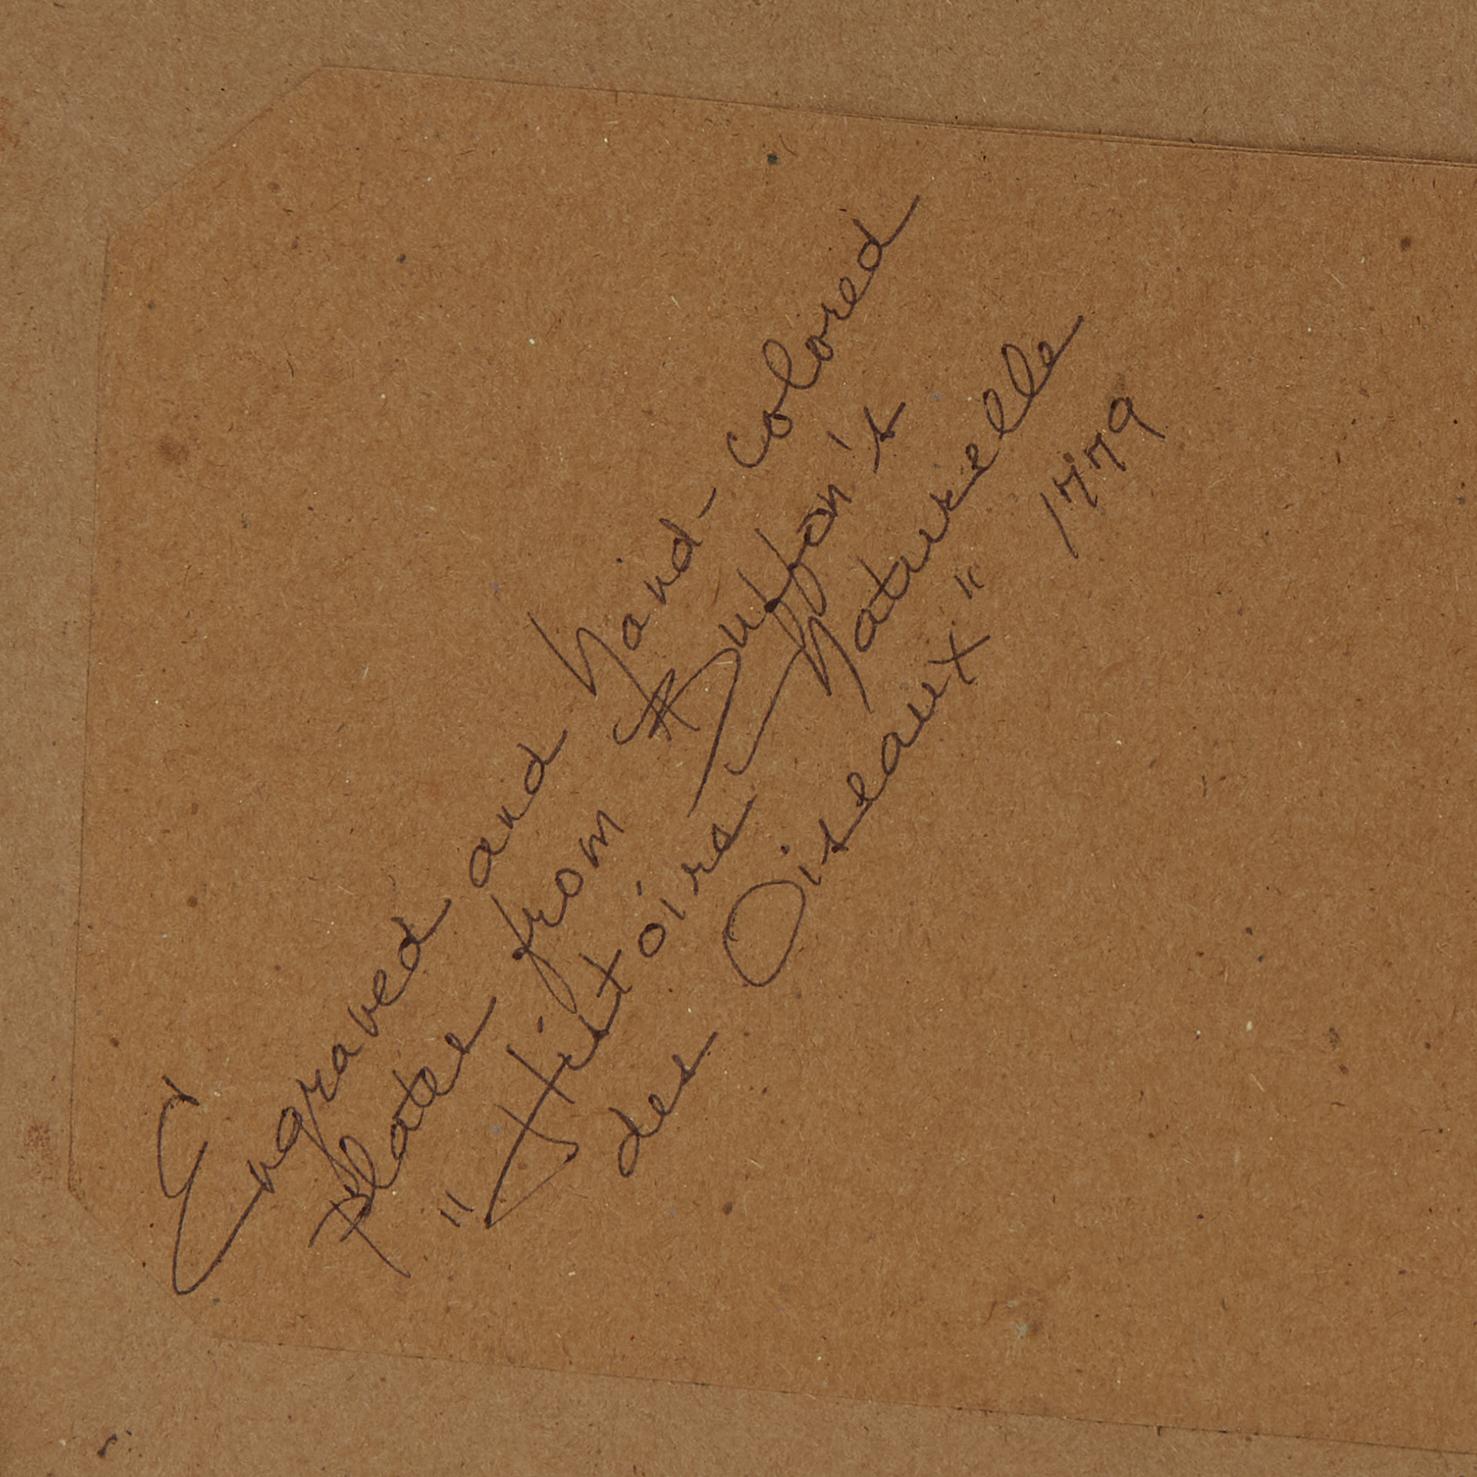 Engraved and hand-colored
plates from Buffon's
"Histoire Naturelle
des Oiseaux" 1779